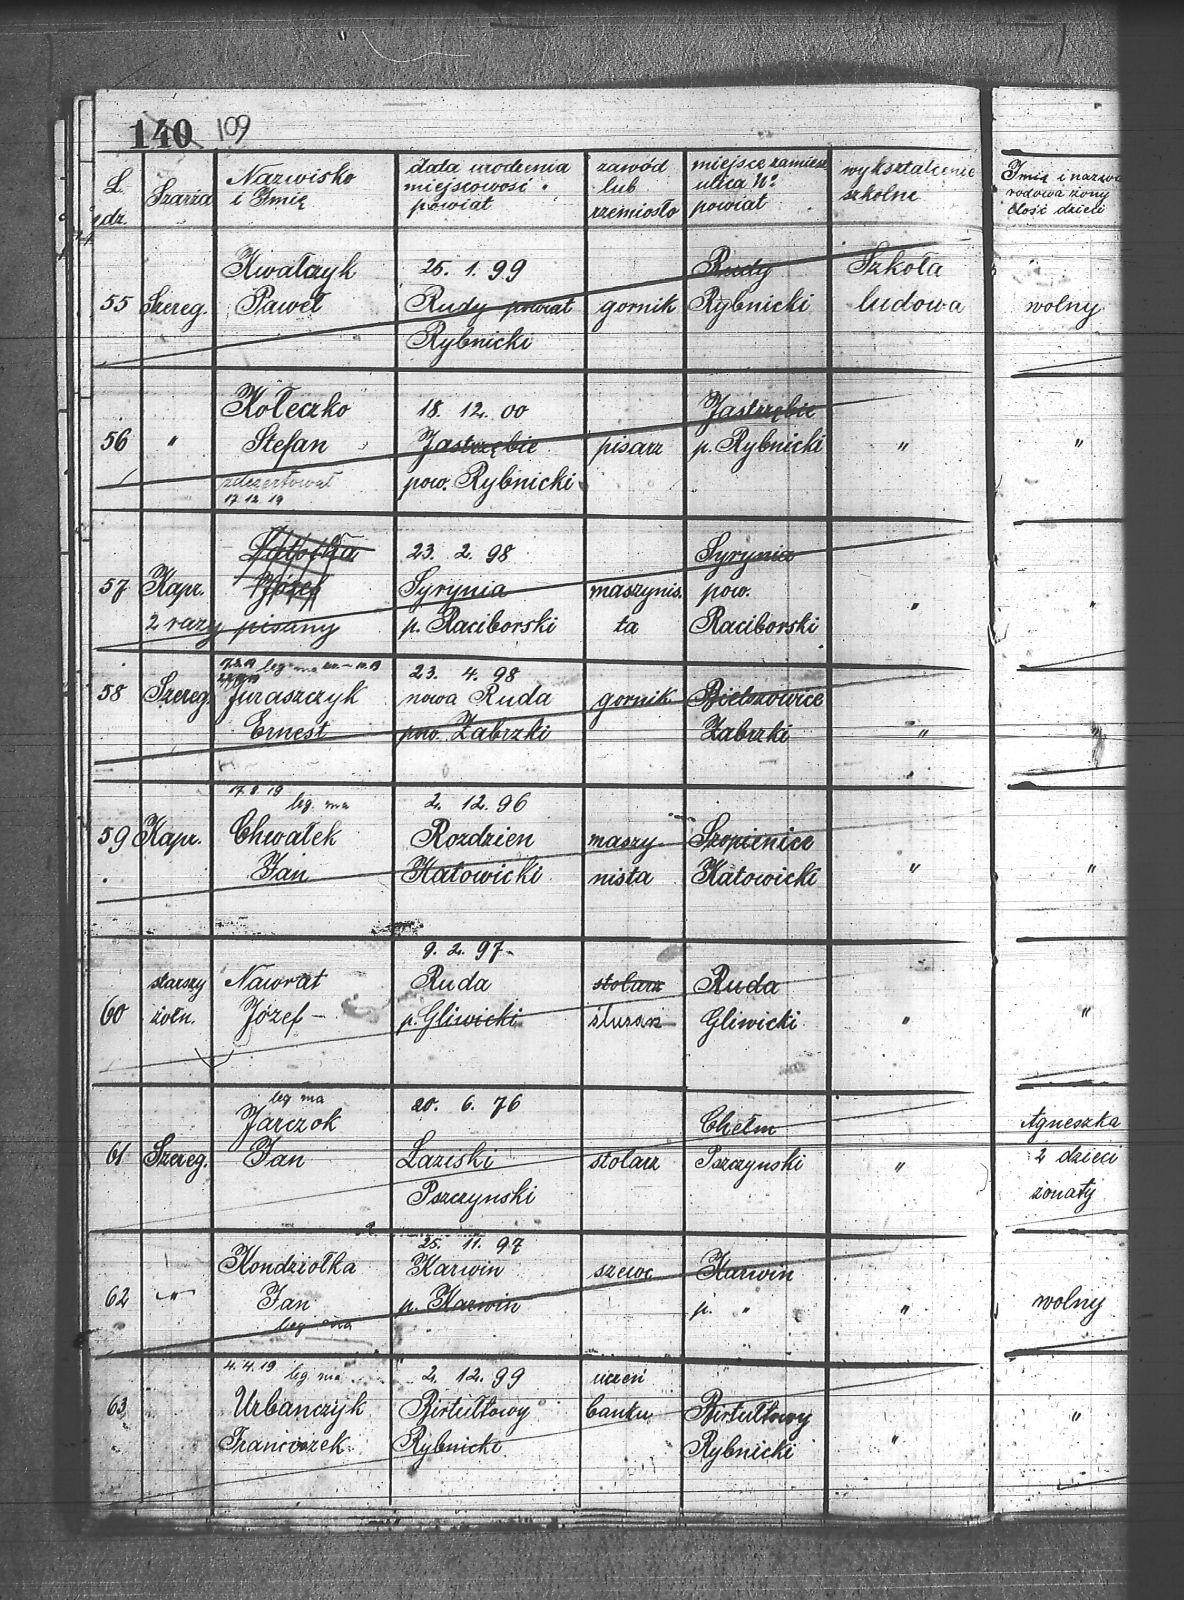 140 109
L. dz. Szarża Nazwisko i Imię data urodzenia miejscowość powiat zawód lub rzemiosło miejsce zamiesz ulica No powiat wykształcenie szkolne Imię i nazwi rodowa żony Ilość dzieci
Kwałczyk 25. 1. 99 Rudy Szkoła
55 Szereg. Paweł Rudy powiat gornik Rybnicki ludowa wolny
Rybnicki
Kołeczko 18. 12. 00 Jastrzębie
56 " Stefan Jastrzębie pisarz p. Rybnicki " "
zdezertował pow. Rybnicki
17 12 19
23. 2. 98 Syrynia
57 Kapr. Józef Syrynia maszynis. pow. " "
2 razy pisany p. Raciborski ta Raciborski
leg. ma 23. 4. 98
58 Szereg. Juraszczyk nowa Ruda gornik Bielszowice
Ernest pow. Zabrzki Zabrzki " "
17. 8 19 leg. ma 2. 12. 96
59 Kapr. Chwałek Rozdzien maszy- Szopienice
Jan Katowicki nista Katowicki " "
9. 2. 97-
starszy Nawrat Ruda stolarz Ruda
60 żołn. Józef - p. Gliwicki ślusarz Gliwicki " "
leg ma 20. 6. 76
Jarczok Chełm Agneszka
61 Szereg. Jan Laziski stolarz Pszczynski " 2 dzieci
Pszczynski żonaty
25. 11. 97
Kondziołka Karwin szewc Karwin
62 " Jan p. Karwin p. " " wolny
leg ma
4. 4. 19 leg ma 2. 12. 99 uczeń
63 Urbanczyk Birtułtowy banku Birtułtowy "
Franciszek Rybnicki Rybnicki "